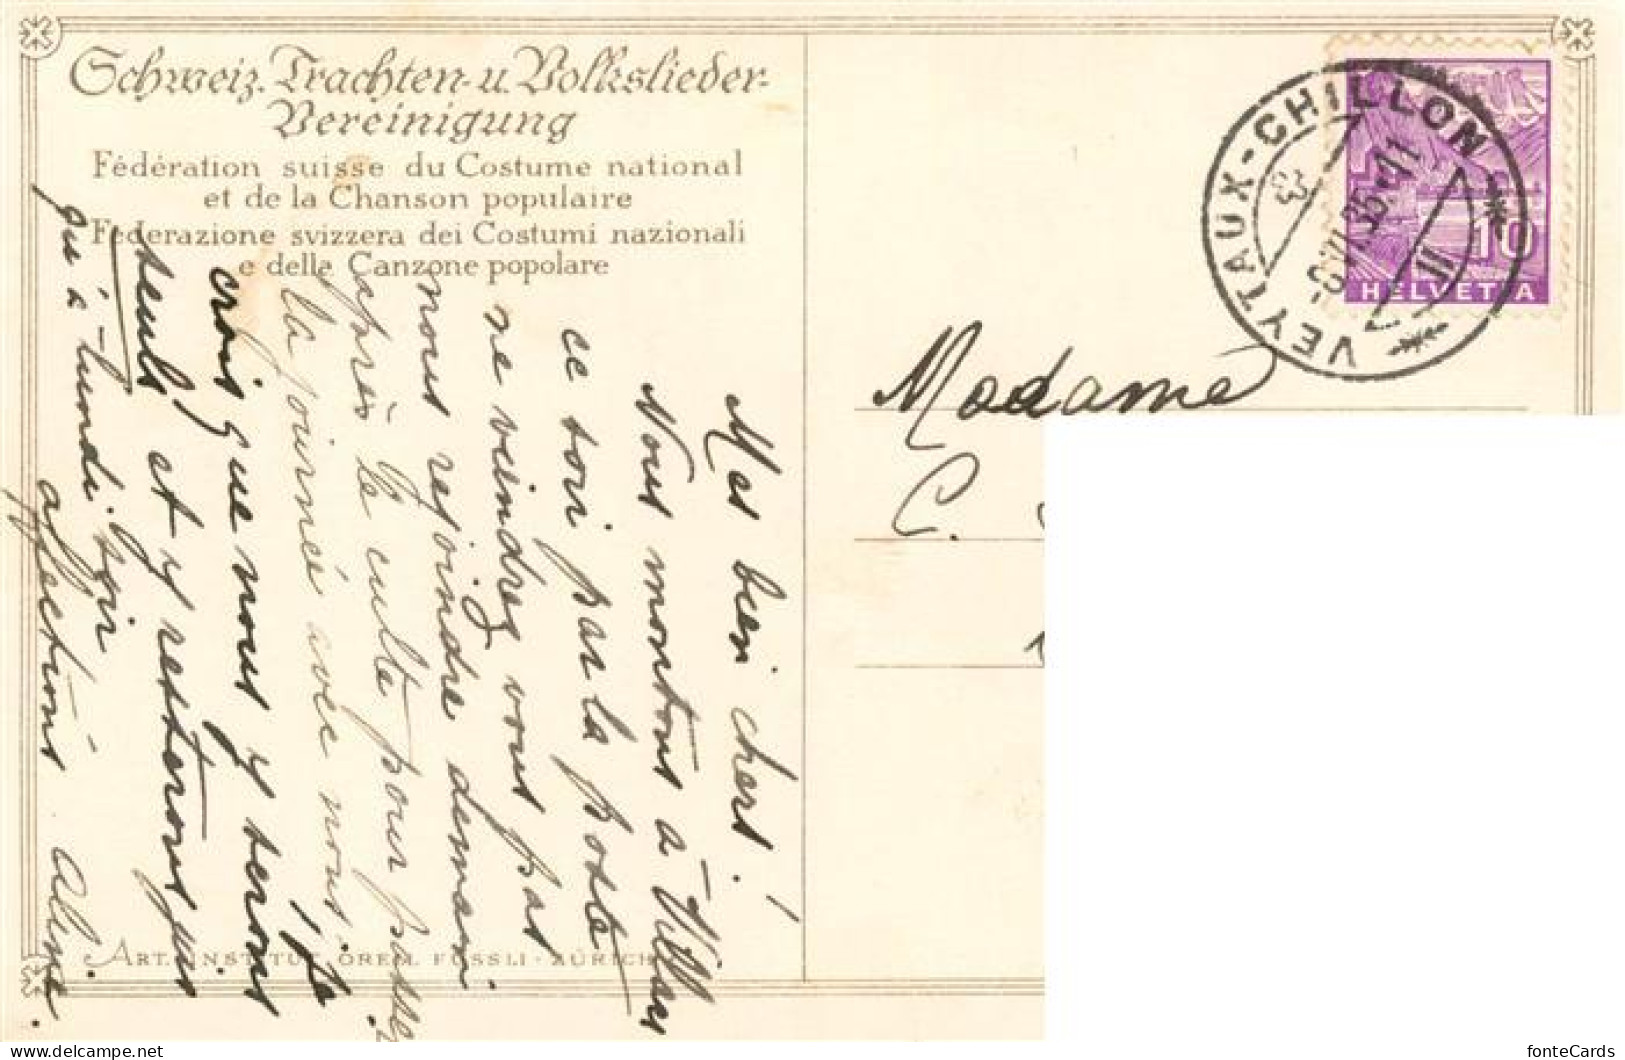 Schweiz. Trachten- u. Volkslieder-
Vereinigung
Fédération suisse du Costume national
et de la Chanson populaire
Federazione svizzera dei Costumi nazionali
e della Canzone popolare
Mes bien chers!
Nous montons à Villars
ce soir par la poste
ne viendrez vous pas
nous rejoindre demain
après le culte pour passer
la journée avec nous, je
crois que nous y serons
seuls et y resterons jus
qu'à lundi soir
affections Aline.
ART. INSTITUT ORELL FÜSSLI · ZÜRICH
VEYTAUX-CHILLON
VI.35.-11
II
10
HELVETIA
Madame
C.
fonteCards